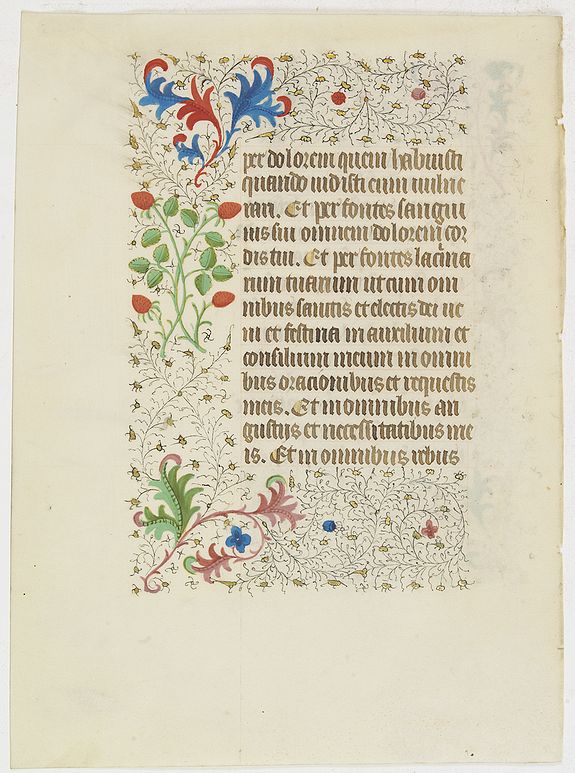 per dolorem quem habuisti
quando uidisti eum uulne
rari. Et per fontes sangui
nis sui omnem dolorem cor
dis tui. Et per fontes lacrima
rum tuarum ut cum om
nibus sanctis et electis dei ue
ni et festina in auxilium et
consilium meum in omni
bus oracionibus et requestis
meis. Et in omnibus an
gustijs et necessitatibus me
is. Et in omnibus rebus